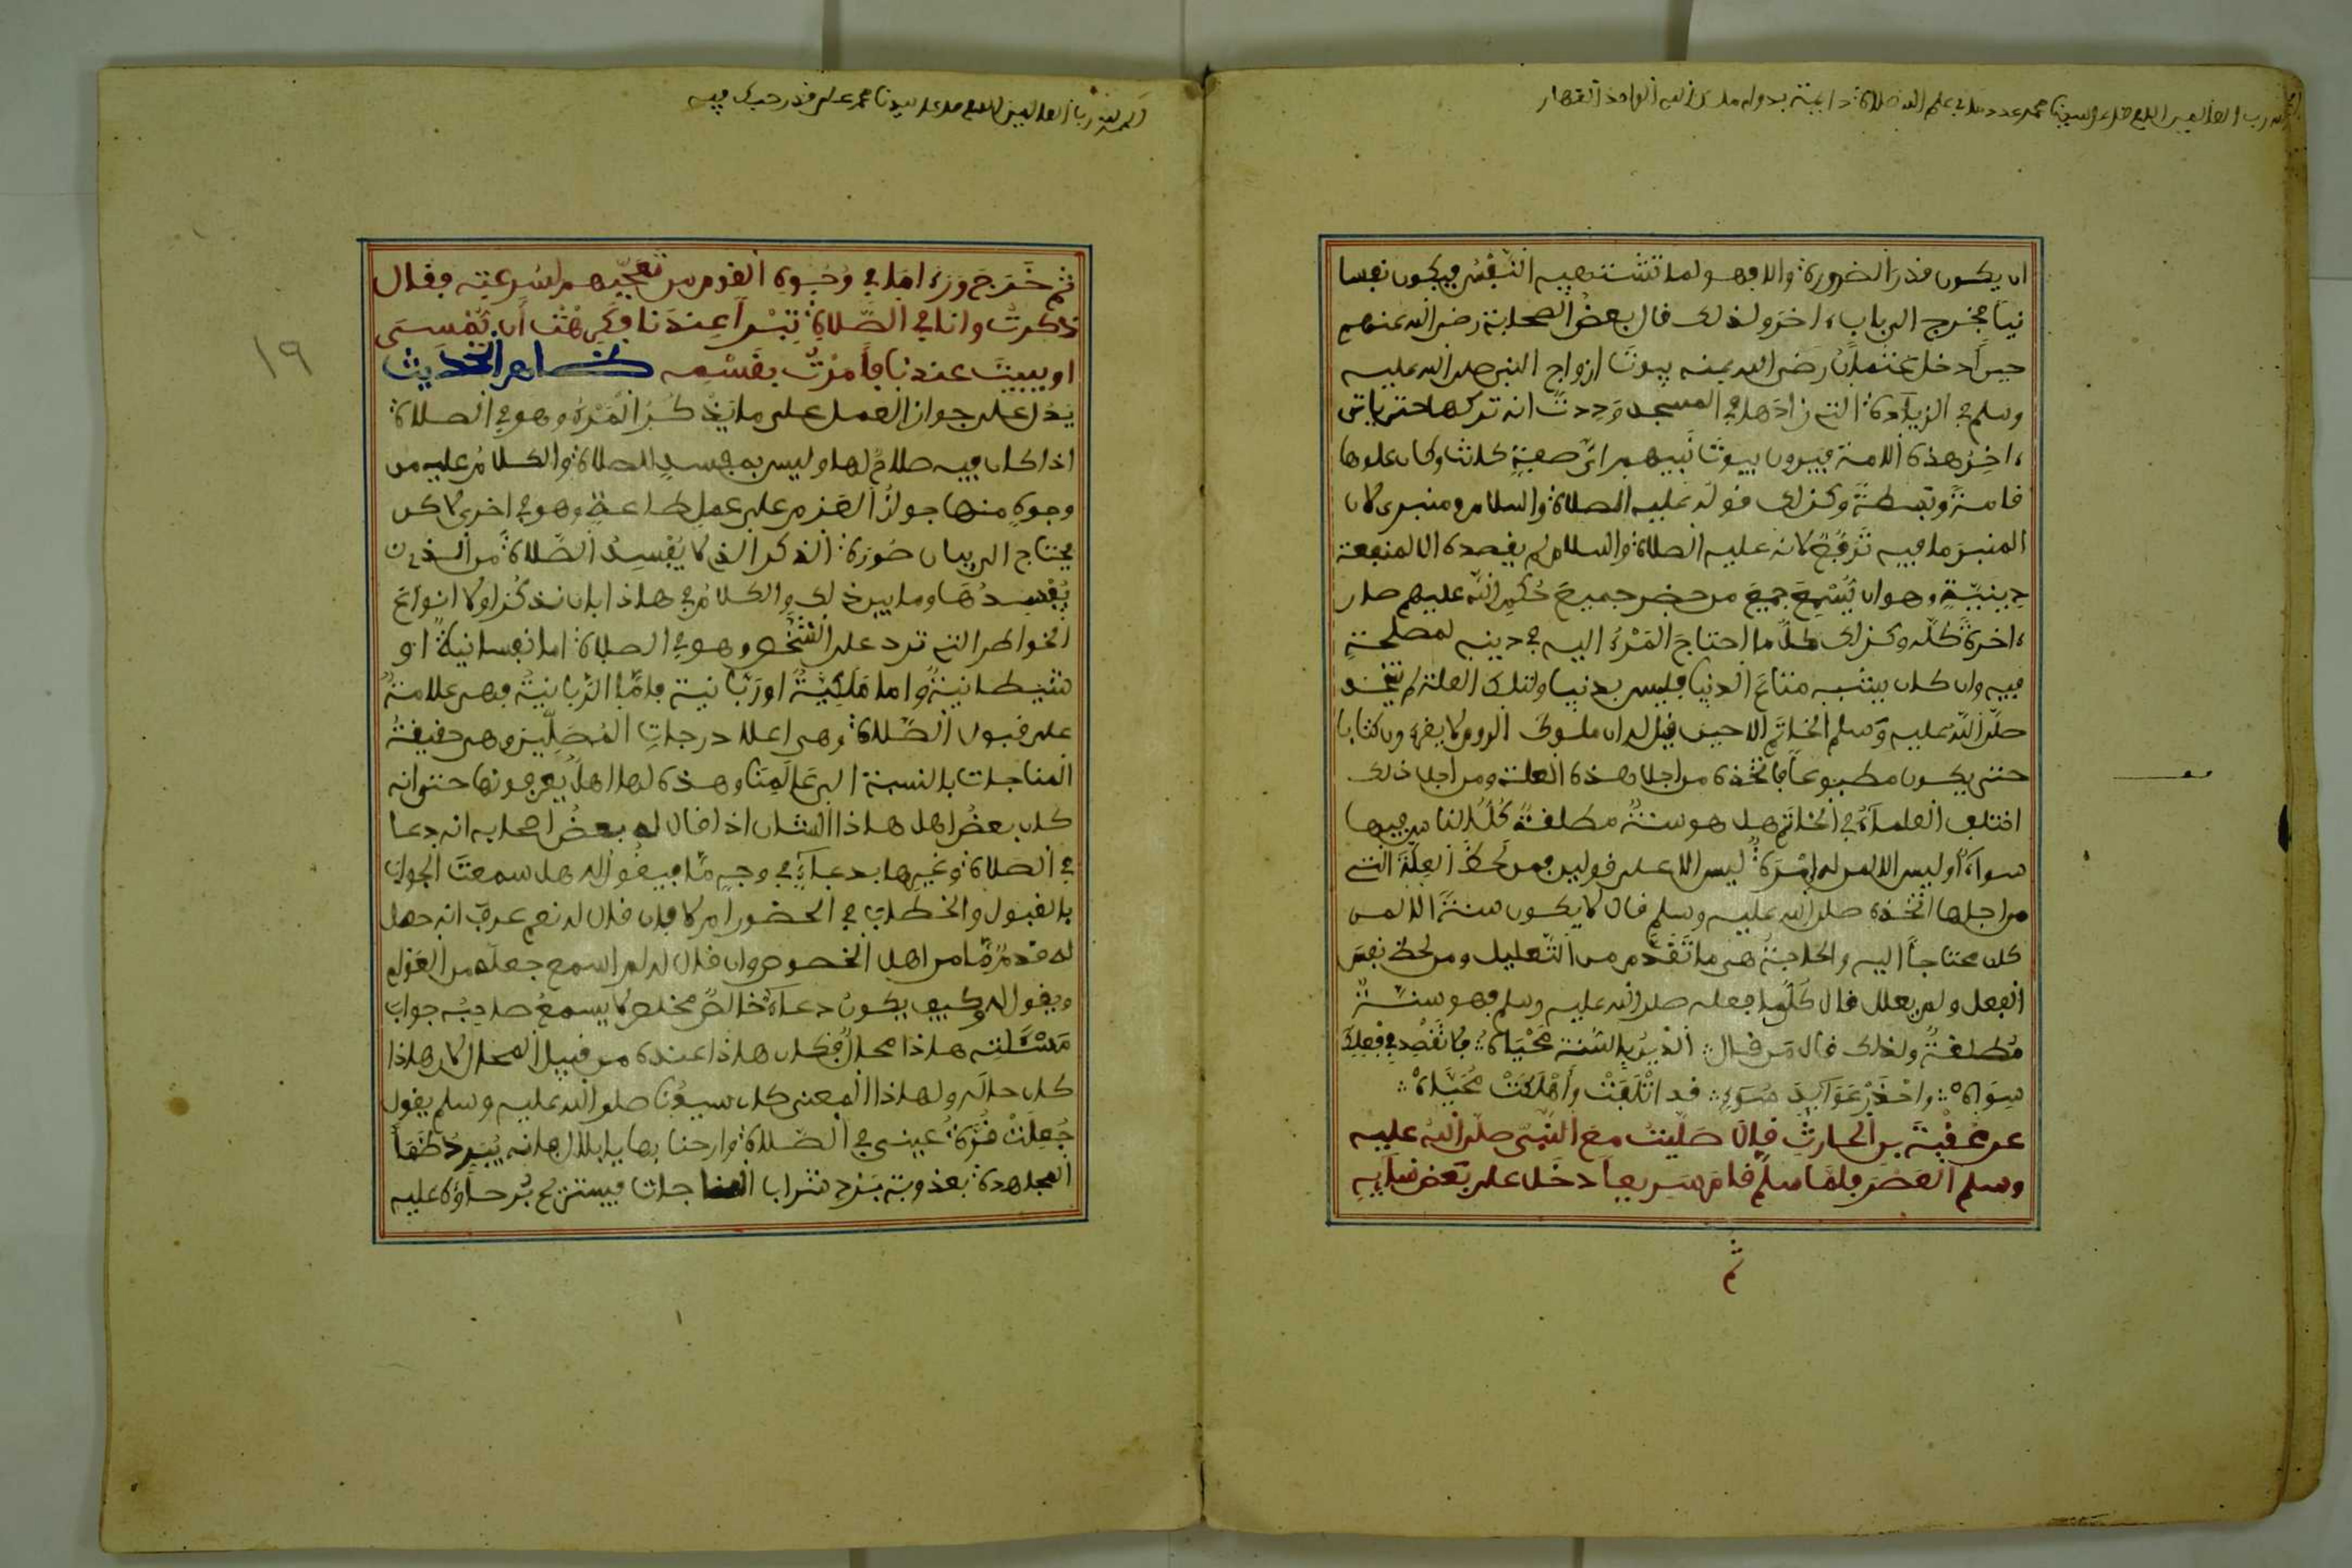 الحمد لله رب العالمين اللهم صل على سيدنا محمد عدد ما في علم الله صلاة دائمة بدوام ملك الله الواحد القهار
ان يكون قدر الضرورة والا فهو لما تشتهيه النَّفْس فيكون نفسا
نيا فخرج الى باب ءاخر ولذلك قال بعضُ الصحابة رضي الله عنهم
حين أدخل عثمان رضي الله عنه بيوتَ ازواج النبي صلى الله عليه
وسلم في الزيادة التي زادها في المسجد وددتُ انه تركها حتى ياتي
ءاخِرُ هذه الامة فيرون بيوتَ نبيهم ائ صفةٍ كانت وكان علوها
قامةً وبَسْطةً وكذلك قوله عليه الصلاة والسلام ومنبرى لان
المنبرَ ما فيه تَرَفُّعٌ لانه عليه الصلاة والسلام لم يقصده الا لمنفعة
دِينيَّةٍ وهو ان يُسْمِعَ جميعَ من حضر جميعَ حُكمِ الله عليهم صار
ءاخرةً كلّه وكذلك كلُّ ما احتاجَ المَرْءُ اليه في دينه لمصلحةٍ
فيه وان كان يشبه متاعَ الدنيا فليس بدنيا ولتلك العلة لم يتخذ
صلَّى اللهُ عليه وَسلم الخاتَم الا حين قيل له ان ملوك الروم لا يقرءون كتابا
حتى يكون مطبوعاً فاتخذه من اجل هذه العلة ومن اجل ذلك
اختلف العلماءُ في الخاتم هل هو سنةٌ مطلقةٌ كُلُّ الناس فيها
سواءٌ أوليس الا لمن له إمْرَةٌ ليس الا على قولين فمن لَحظَ العِلَّةَ التي
من اجلها اتَّخَذَه صلى الله عليه وسلم قال لا يكون سنةً الا لمن
كان محتاجاً اليه والحاجةُ هي ما تَقَدَّم من التَّعليل ومن لحظ نفسَ
الفعل ولم يعلل قال كُلُّ ما فعله صلى الله عليه وسلم فهو سنَّةٌ
مُطلقةٌ ولذلك قال مَن قال الدّينُ بالسُّنةِ مَحْيَاهُ فلا تَقْصِد في فِعلِكَ
سِوَاهُ واحْذَرْ عَوَآئِدَ سُوءٍ قد اتْلَفَتْ وأَهْلَكَتْ مُحَيَّاهْ
عن عُقْبَةَ بن الحارِثِ قالَ صَلّيتُ معَ النَّبىّ صلّى اللهُ عليه
وسلم العَصْرَ فلمَّا سلّم قامَ سَرِيعاً دخَل على بَعْض نسآيِهِ
ثم
الحمد لله رب العالمين اللهم صل على سيدنا محمد على قدر حبك فيه
ثم خَرَجَ ورَءَا ما في وُجُوهِ القوم من تعَجُّبِهم لسُرعتِه فقال
ذكرتُ وانا في الصَّلاةِ تِبْراً عِندَنا فكَرِهْتُ أَن يُمْسِىَ
او يبيتَ عندنا فأمَرْتُ بقَسْمِه ظاهر الحديث
يَدُل على جواز العمل على ما يَذْكُرُ المَرْءُ وهو في الصلاة
اذا كان فيه صلاحٌ لها وليس بمفسدٍ للصلاة والكلامُ عليه من
وجوهٍ منها جوازُ العَزم على عملِ طاعةٍ وهو في اخرى لاكن
يحتاج الى بيان صُورَةِ الذكر الذى لا يُفْسِدُ الصَّلاةَ من الذى
يُفْسدُهَا وما بين ذلك والكلامُ في هاذا بان نذكُرَ اولا انواعَ
الخواطر التى ترد على الشَّخْص وهو في الصلاة اما نفسانيةٌ او
شيطانيةٌ واما مَلَكِيَّةٌ اورَبَّانية فامّا الرَّبانيةُ فهى علامةُ
على قبول الصَّلاة وهى اعلا درجاتِ المُصَلِّين وهى حقيقةُ
المناجات بالنسبة الى عَالَمِنَا وهذه لها اهلٌ يعرفونها حتى انه
كان بعضُ اهل هاذا الشان اذا قال له بعضُ اصحابه انه دعا
في الصَلاة وغيرها بدعاءٍ في وجهٍ مَّا فيقُولُ له هل سمعتَ الجوابَ
بالقبول والخطابَ في الحضور ام لا فان قال له نعم عرف انه حصل
له قدمٌ مَّا من اهل الخصوص وان قال له لم اسمع جعلَه من العَوام
ويقول له وكيف يكونُ دعآءٌ خالصٌ مخلص لا يسمعُ صاحِبُه جوابَ
مَسْئَلتِه هاذا محالٌ فكان هاذا عنده من قبيل المحال لان هاذا
كان حالَه ولهاذا المعنى كان سيدُنا صلى الله عليه وسلم يقول
جُعِلَتْ قُرَّةُ عَينى في الصَّلاة وارحنا بها يا بلال لانه يُبَرِدُ ظَمَأَ
المجاهدة بعذوبة بَرْد شراب المناجات فيستريح بُرحآؤه عليه
١٩